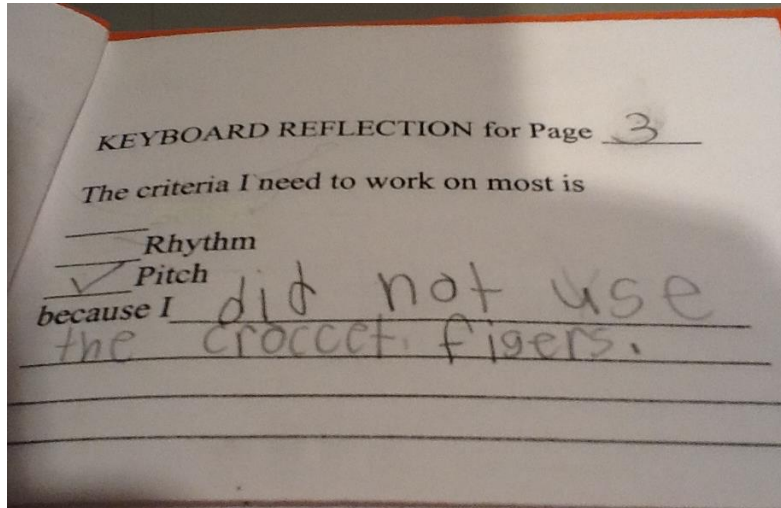 KEYBOARD REFLECTION for Page 3
The criteria I need to work on most is
Rhythm
✓ Pitch
because I did not use
the croccet figers.